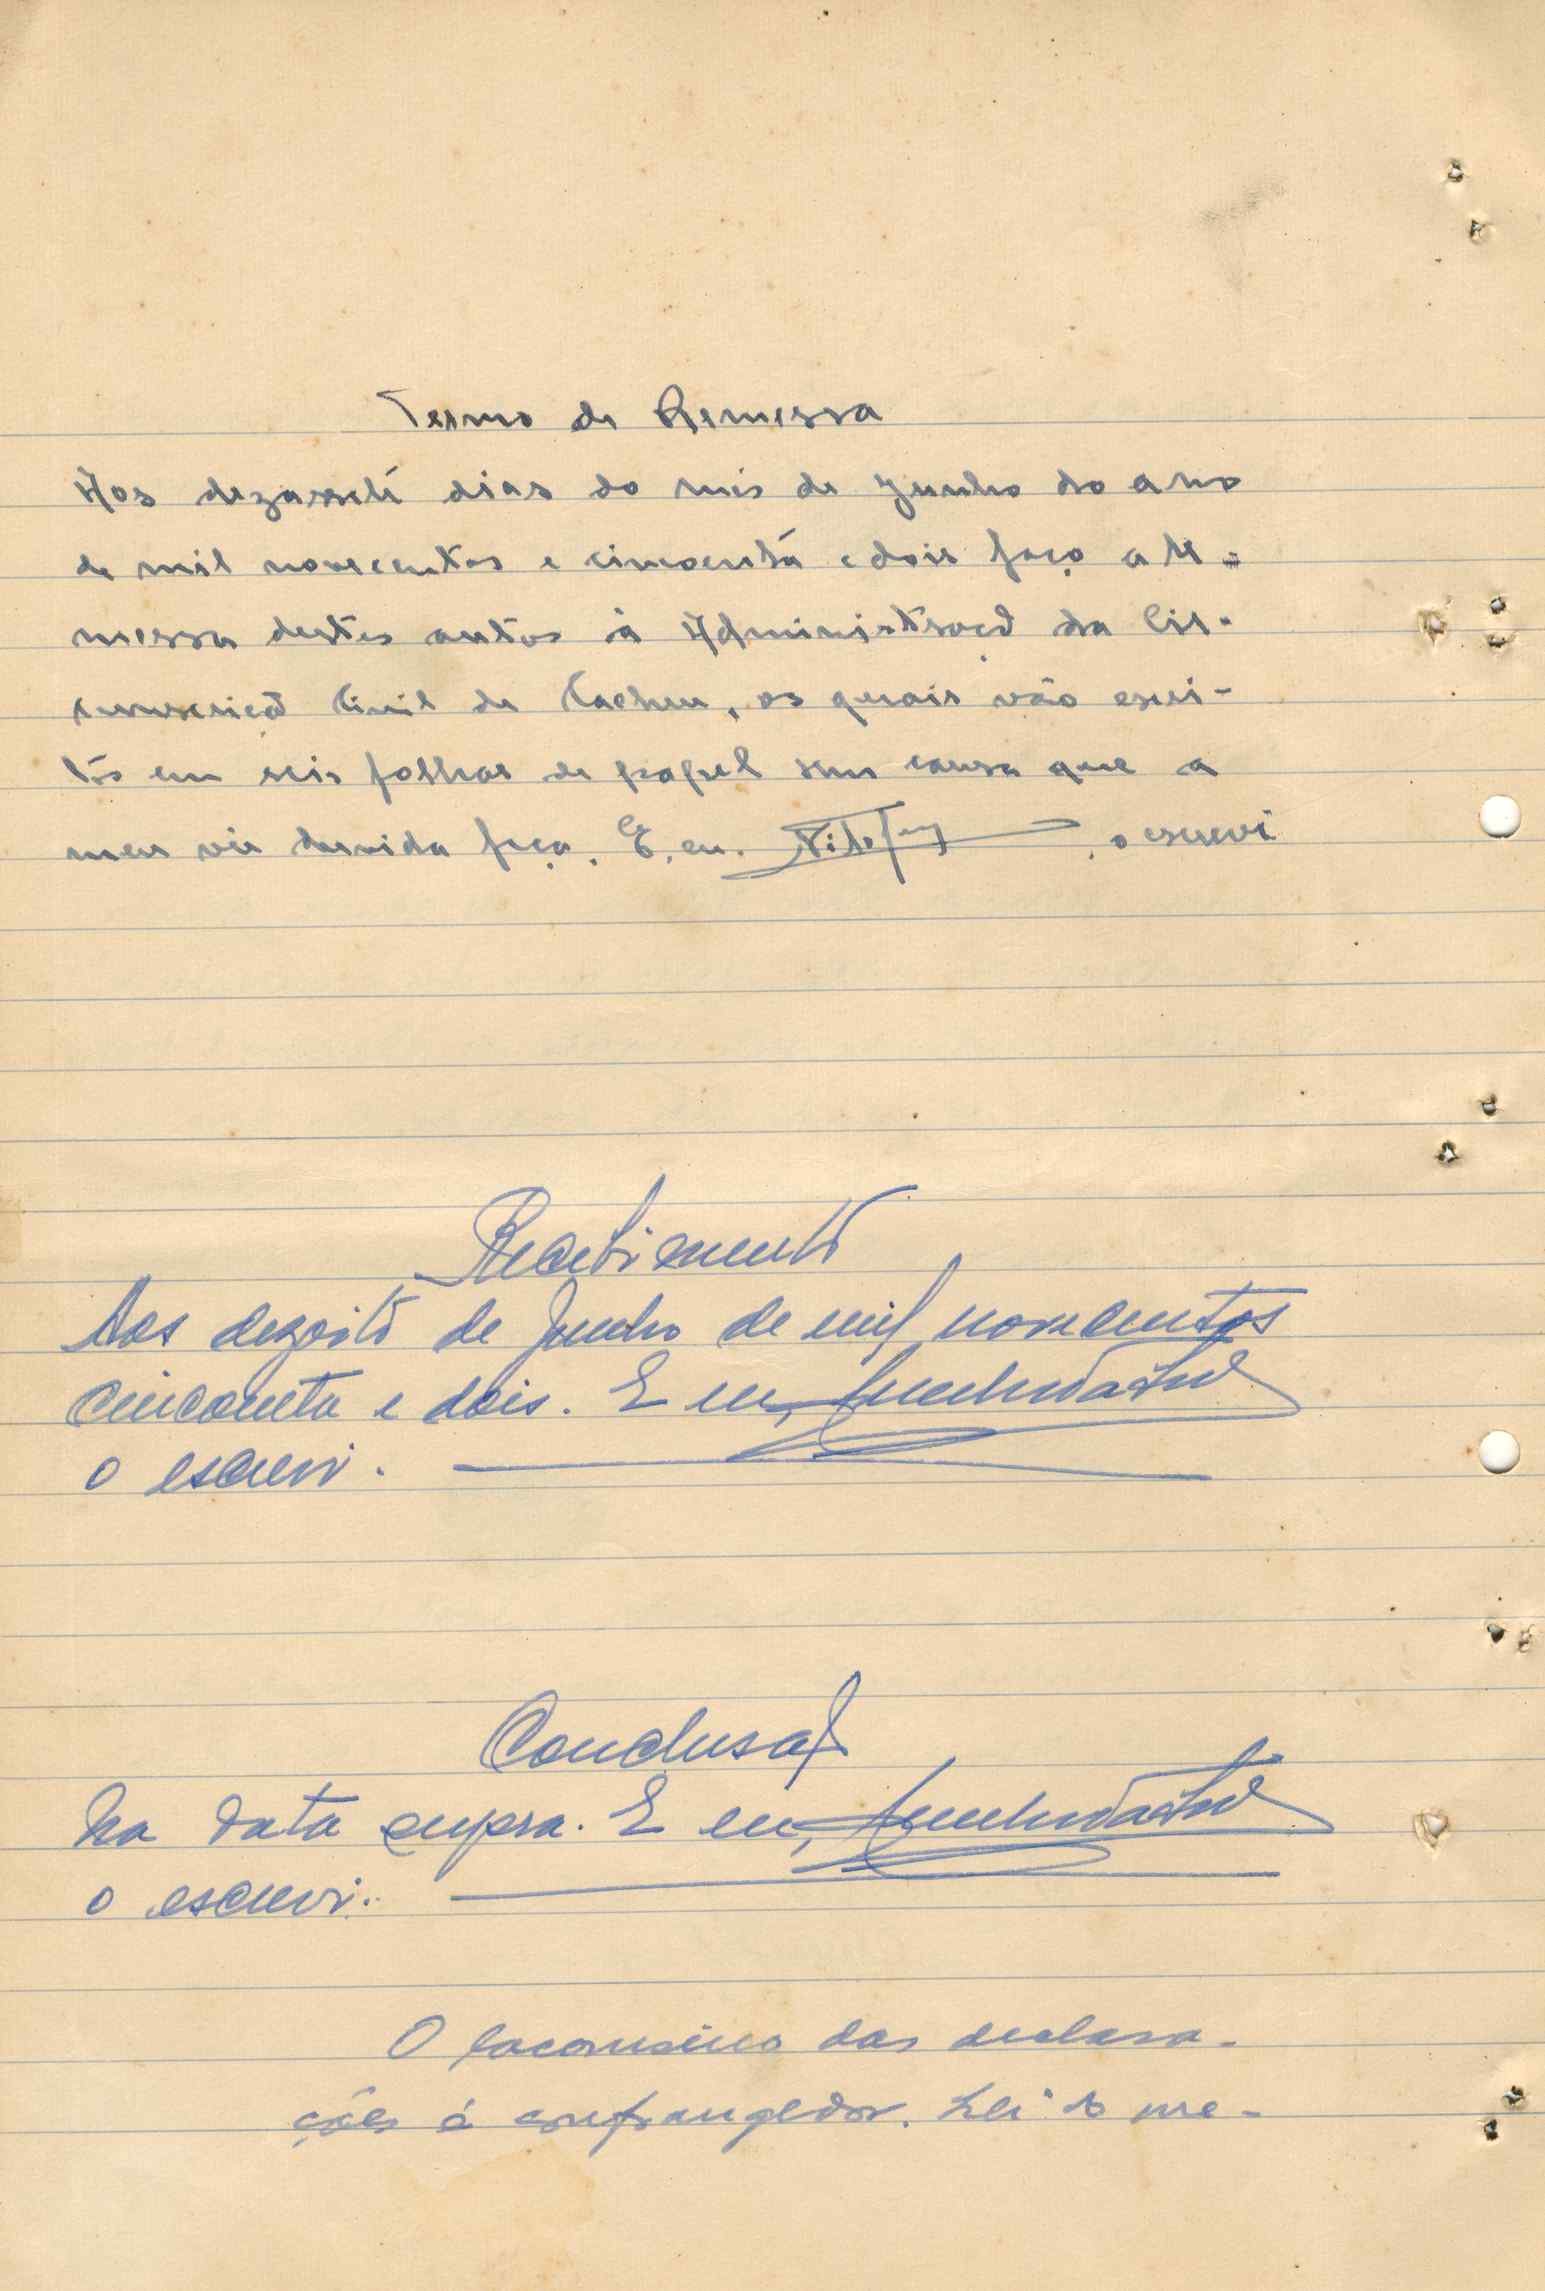 Termo de Remessa
Aos dezasseté dias do mês de Junho do ano
de mil novecentos e cincoentá e dois faço a re=
messa destes autos à Administração da Cir-
cunscrição Civil de Cacheu, os quais vão escri-
tos em seis folhas de papel sem causa que a
meu vêr duvida faça. E, eu, , o escrevi
Recebimento
Aos dezoito de Junho de mil novecentos
cincoenta e dois. E eu,
o escrevi.
Conclusão
Na data supra. E eu,
o escrevi.
O laconismo das declara-
ções é confrangedor. Lei o me-